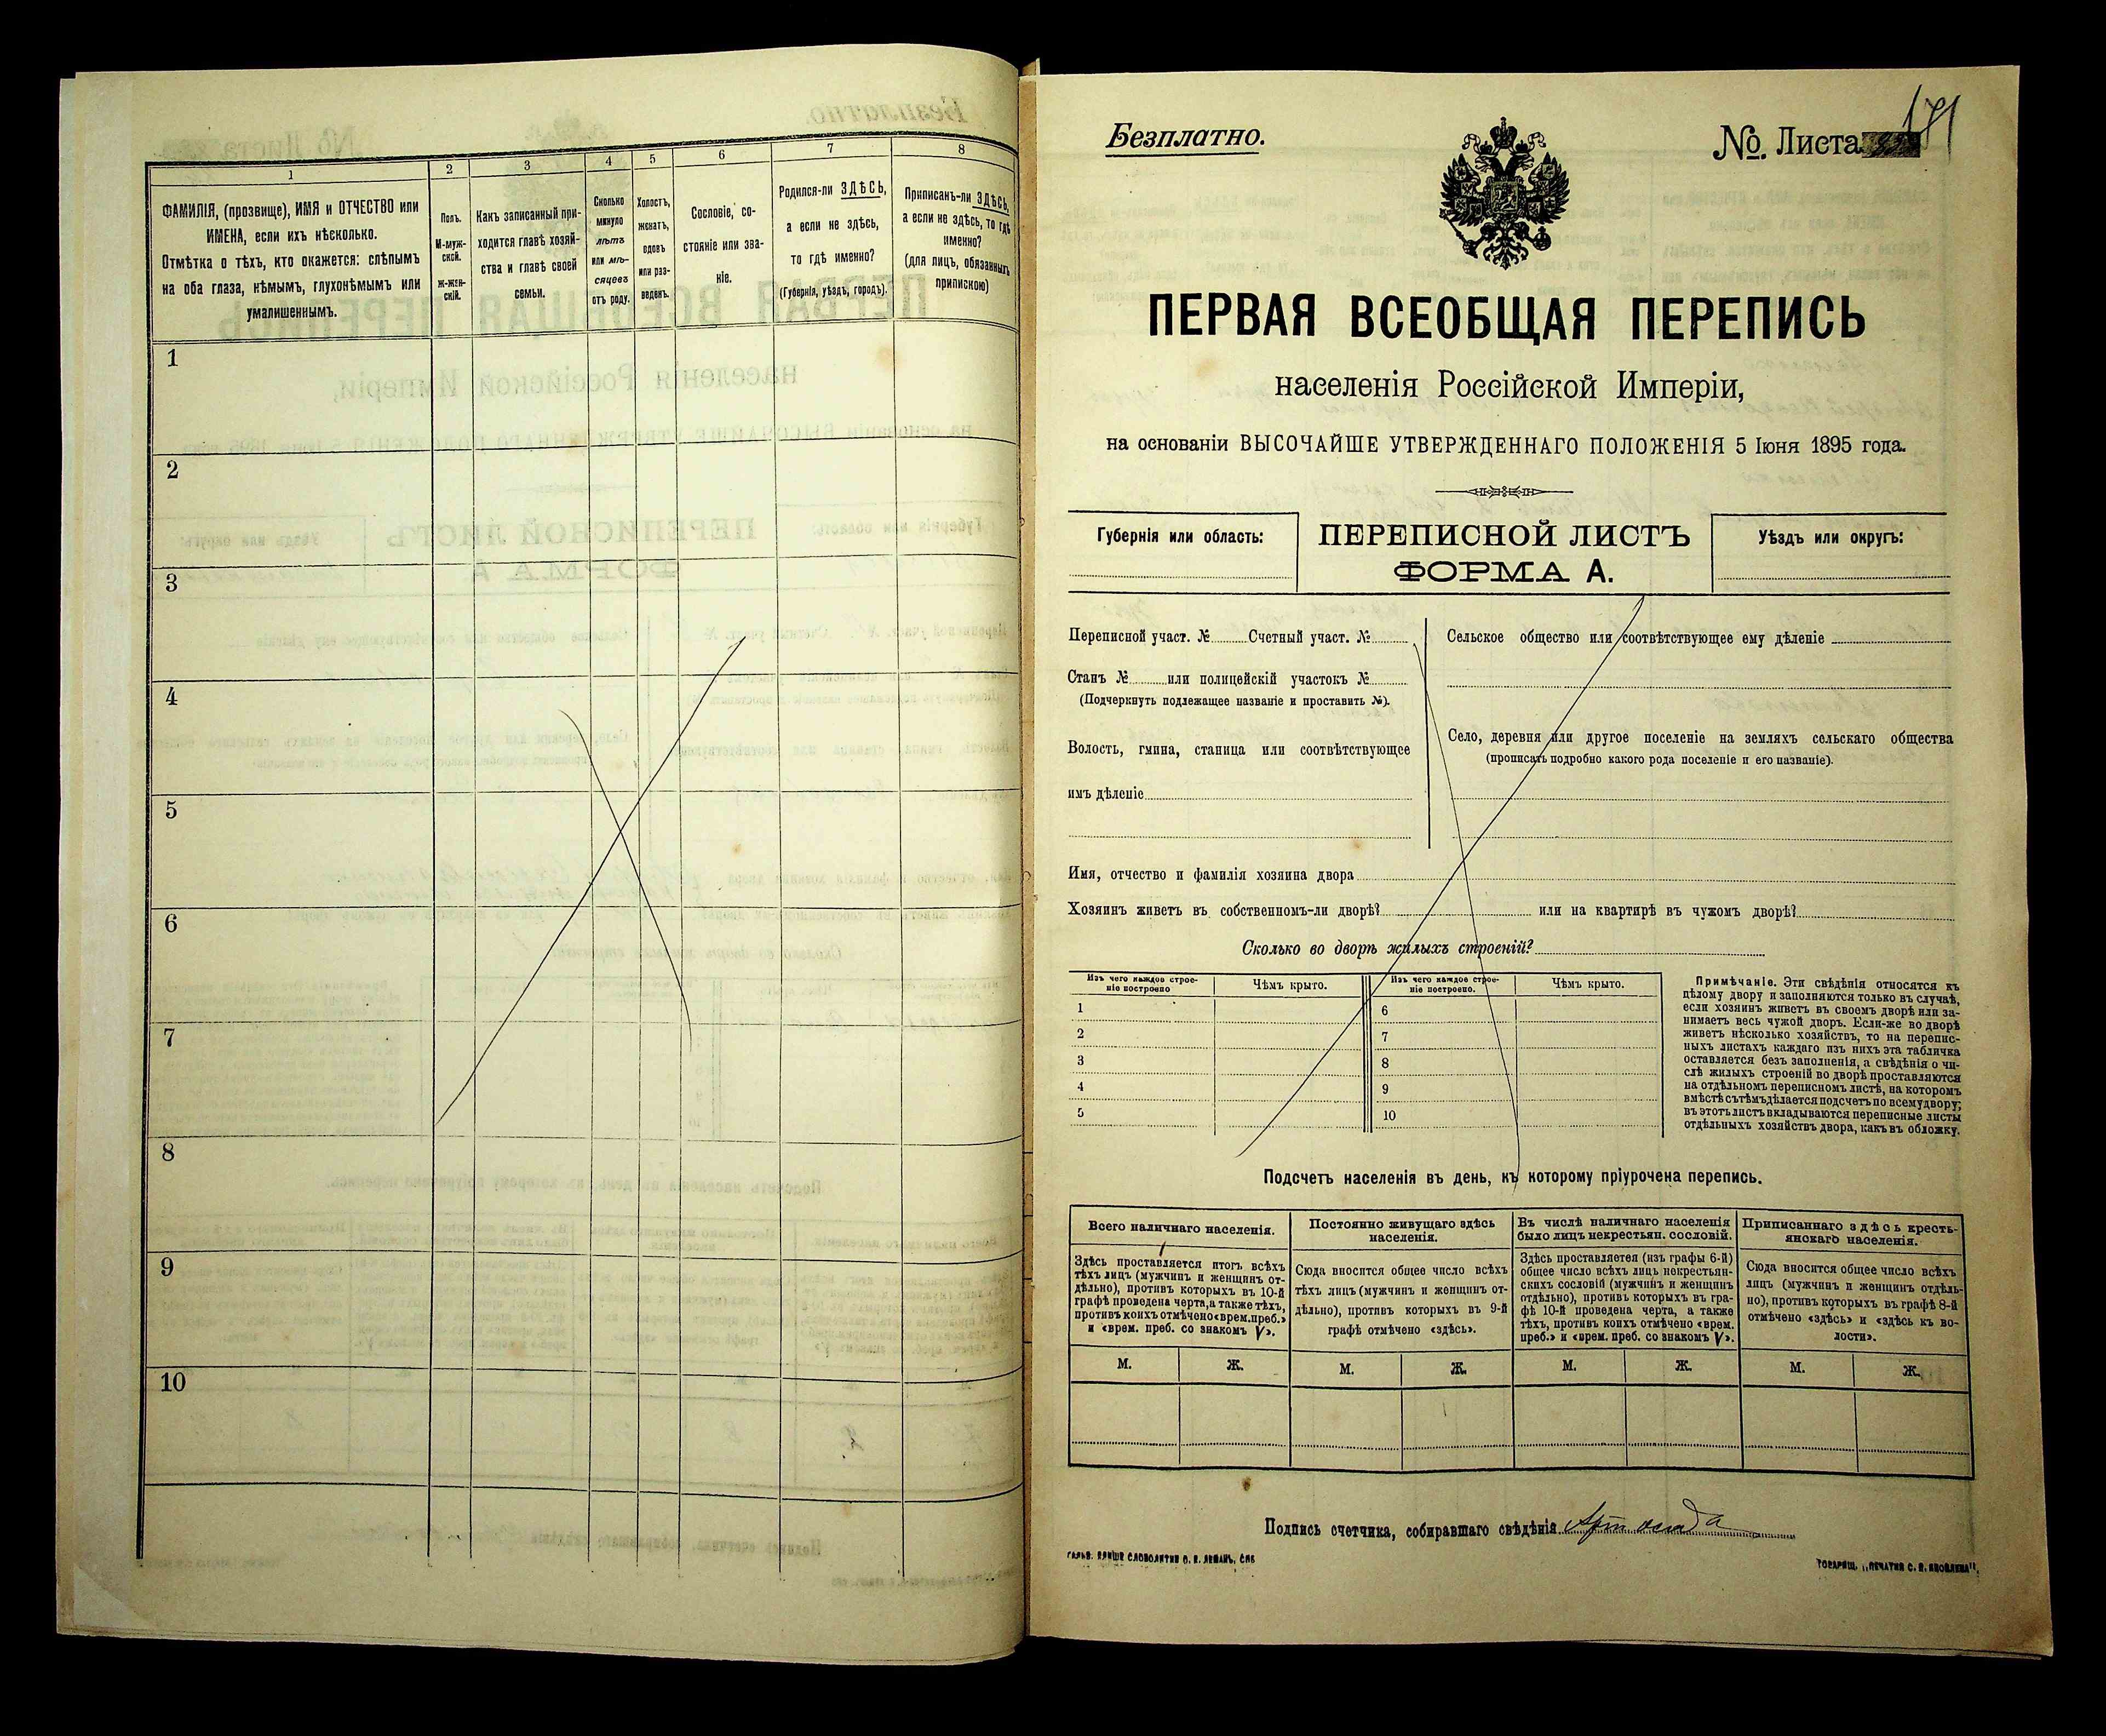 1 2 3 4 5 6 7 8
ФАМИЛІЯ, (прозвище), ИМЯ и ОТЧЕСТВО или
ИМЕНА, если ихъ нѣсколько.
Отмѣтка о тѣхъ, кто окажется: слѣпымъ
на оба глаза, нѣмымъ, глухонѣмымъ или
умалишеннымъ.
Полъ.
М-муж-
ской.
Ж-жен-
скій.
Какъ записанный при-
ходится главѣ хозяй-
ства и главѣ своей
семьи.
Сколько
минуло
лѣтъ
или мѣ-
сяцевъ
отъ роду.
Холостъ,
женатъ,
вдовъ
или раз-
веденъ.
Сословіе, со-
стояніе или зва-
ніе.
Родился-ли ЗДѢСЬ,
а если не здѣсь,
то гдѣ именно?
(Губернія, уѣздъ, городъ).
Приписанъ-ли ЗДѢСЬ,
а если не здѣсь, то гдѣ
именно?
(для лицъ, обязанныхъ
припискою)
1
2
3
4
5
6
7
8
9
10
Безплатно.
№. Листа
ПЕРВАЯ ВСЕОБЩАЯ ПЕРЕПИСЬ
населенія Россійской Имперіи,
на основаніи ВЫСОЧАЙШЕ УТВЕРЖДЕННАГО ПОЛОЖЕНІЯ 5 Іюня 1895 года.
Губернія или область:
ПЕРЕПИСНОЙ ЛИСТЪ
ФОРМА А.
Уѣздъ или округъ:
Переписной участ. № Счетный участ. №
Станъ № или полицейскій участокъ №
(Подчеркнуть подлежащее названіе и проставить №).
Волость, гмина, станица или соотвѣтствующее
имъ дѣленіе
Сельское общество или соотвѣтствующее ему дѣленіе
Село, деревня или другое поселеніе на земляхъ сельскаго общества
(прописать подробно какого рода поселеніе и его названіе).
Имя, отчество и фамилія хозяина двора
Хозяинъ живетъ въ собственномъ-ли дворѣ? или на квартирѣ въ чужомъ дворѣ?
Сколько во дворѣ жилыхъ строеній?
Изъ чего каждое строе-
ніе построено
Чѣмъ крыто.
Изъ чего каждое строе-
ніе построено.
Чѣмъ крыто.
1 6
2 7
3 8
4 9
5 10
Примѣчаніе. Эти свѣдѣнія относятся къ
цѣлому двору и заполняются только въ случаѣ,
если хозяинъ живетъ въ своемъ дворѣ или за-
нимаетъ весь чужой дворъ. Если-же во дворѣ
живетъ нѣсколько хозяйствъ, то на перепис-
ныхъ листахъ каждаго изъ нихъ эта табличка
оставляется безъ заполненія, а свѣдѣнія о чи-
слѣ жилыхъ строеній во дворѣ проставляются
на отдѣльномъ переписномъ листѣ, на которомъ
вмѣстѣ съ тѣмъ дѣлается подсчетъ по всему двору;
въ этотъ листъ вкладываются переписные листы
отдѣльныхъ хозяйствъ двора, какъ въ обложку.
Подсчетъ населенія въ день, къ которому пріурочена перепись.
Всего наличнаго населенія.
Здѣсь проставляется итогъ всѣхъ
тѣхъ лицъ (мужчинъ и женщинъ от-
дѣльно), противъ которыхъ въ 10-й
графѣ проведена черта, а также тѣхъ,
противъ коихъ отмѣчено «врем. преб.»
и «врем. преб. со знакомъ V».
Постоянно живущаго здѣсь
населенія.
Сюда вносится общее число всѣхъ
тѣхъ лицъ (мужчинъ и женщинъ от-
дѣльно), противъ которыхъ въ 9-й
графѣ отмѣчено «здѣсь».
Въ числѣ наличнаго населенія
было лицъ некрестьян. сословій.
Здѣсь проставляется (изъ графы 6-й)
общее число всѣхъ лицъ некрестьян-
скихъ сословій (мужчинъ и женщинъ
отдѣльно), противъ которыхъ въ гра-
фѣ 10-й проведена черта, а также
тѣхъ, противъ коихъ отмѣчено «врем.
преб.» и «врем. преб. со знакомъ V».
Приписаннаго здѣсь кресть-
янскаго населенія.
Сюда вносится общее число всѣхъ
лицъ (мужчинъ и женщинъ отдѣль-
но), противъ которыхъ въ графѣ 8-й
отмѣчено «здѣсь» и «здѣсь въ во-
лости».
М. Ж. М. Ж. М. Ж. М. Ж.
Подпись счетчика, собиравшаго свѣдѣнія
ГАЛЬВ. КЛИШЕ СЛОВОЛИТНИ О. И. ЛЕМАНЪ, СПБ
ТОВАРИЩ. „ПЕЧАТНЯ С. П. ЯКОВЛЕВА".